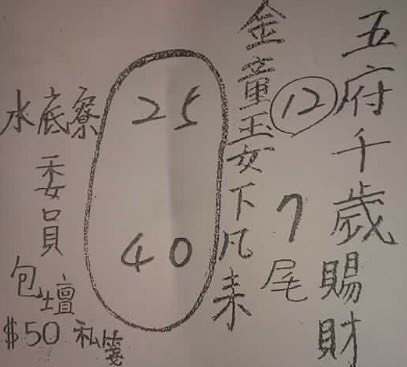 五府千歲賜財
12
7尾
金童玉女下凡來
25
40
水底寮
委員
包壇
$50 私箋